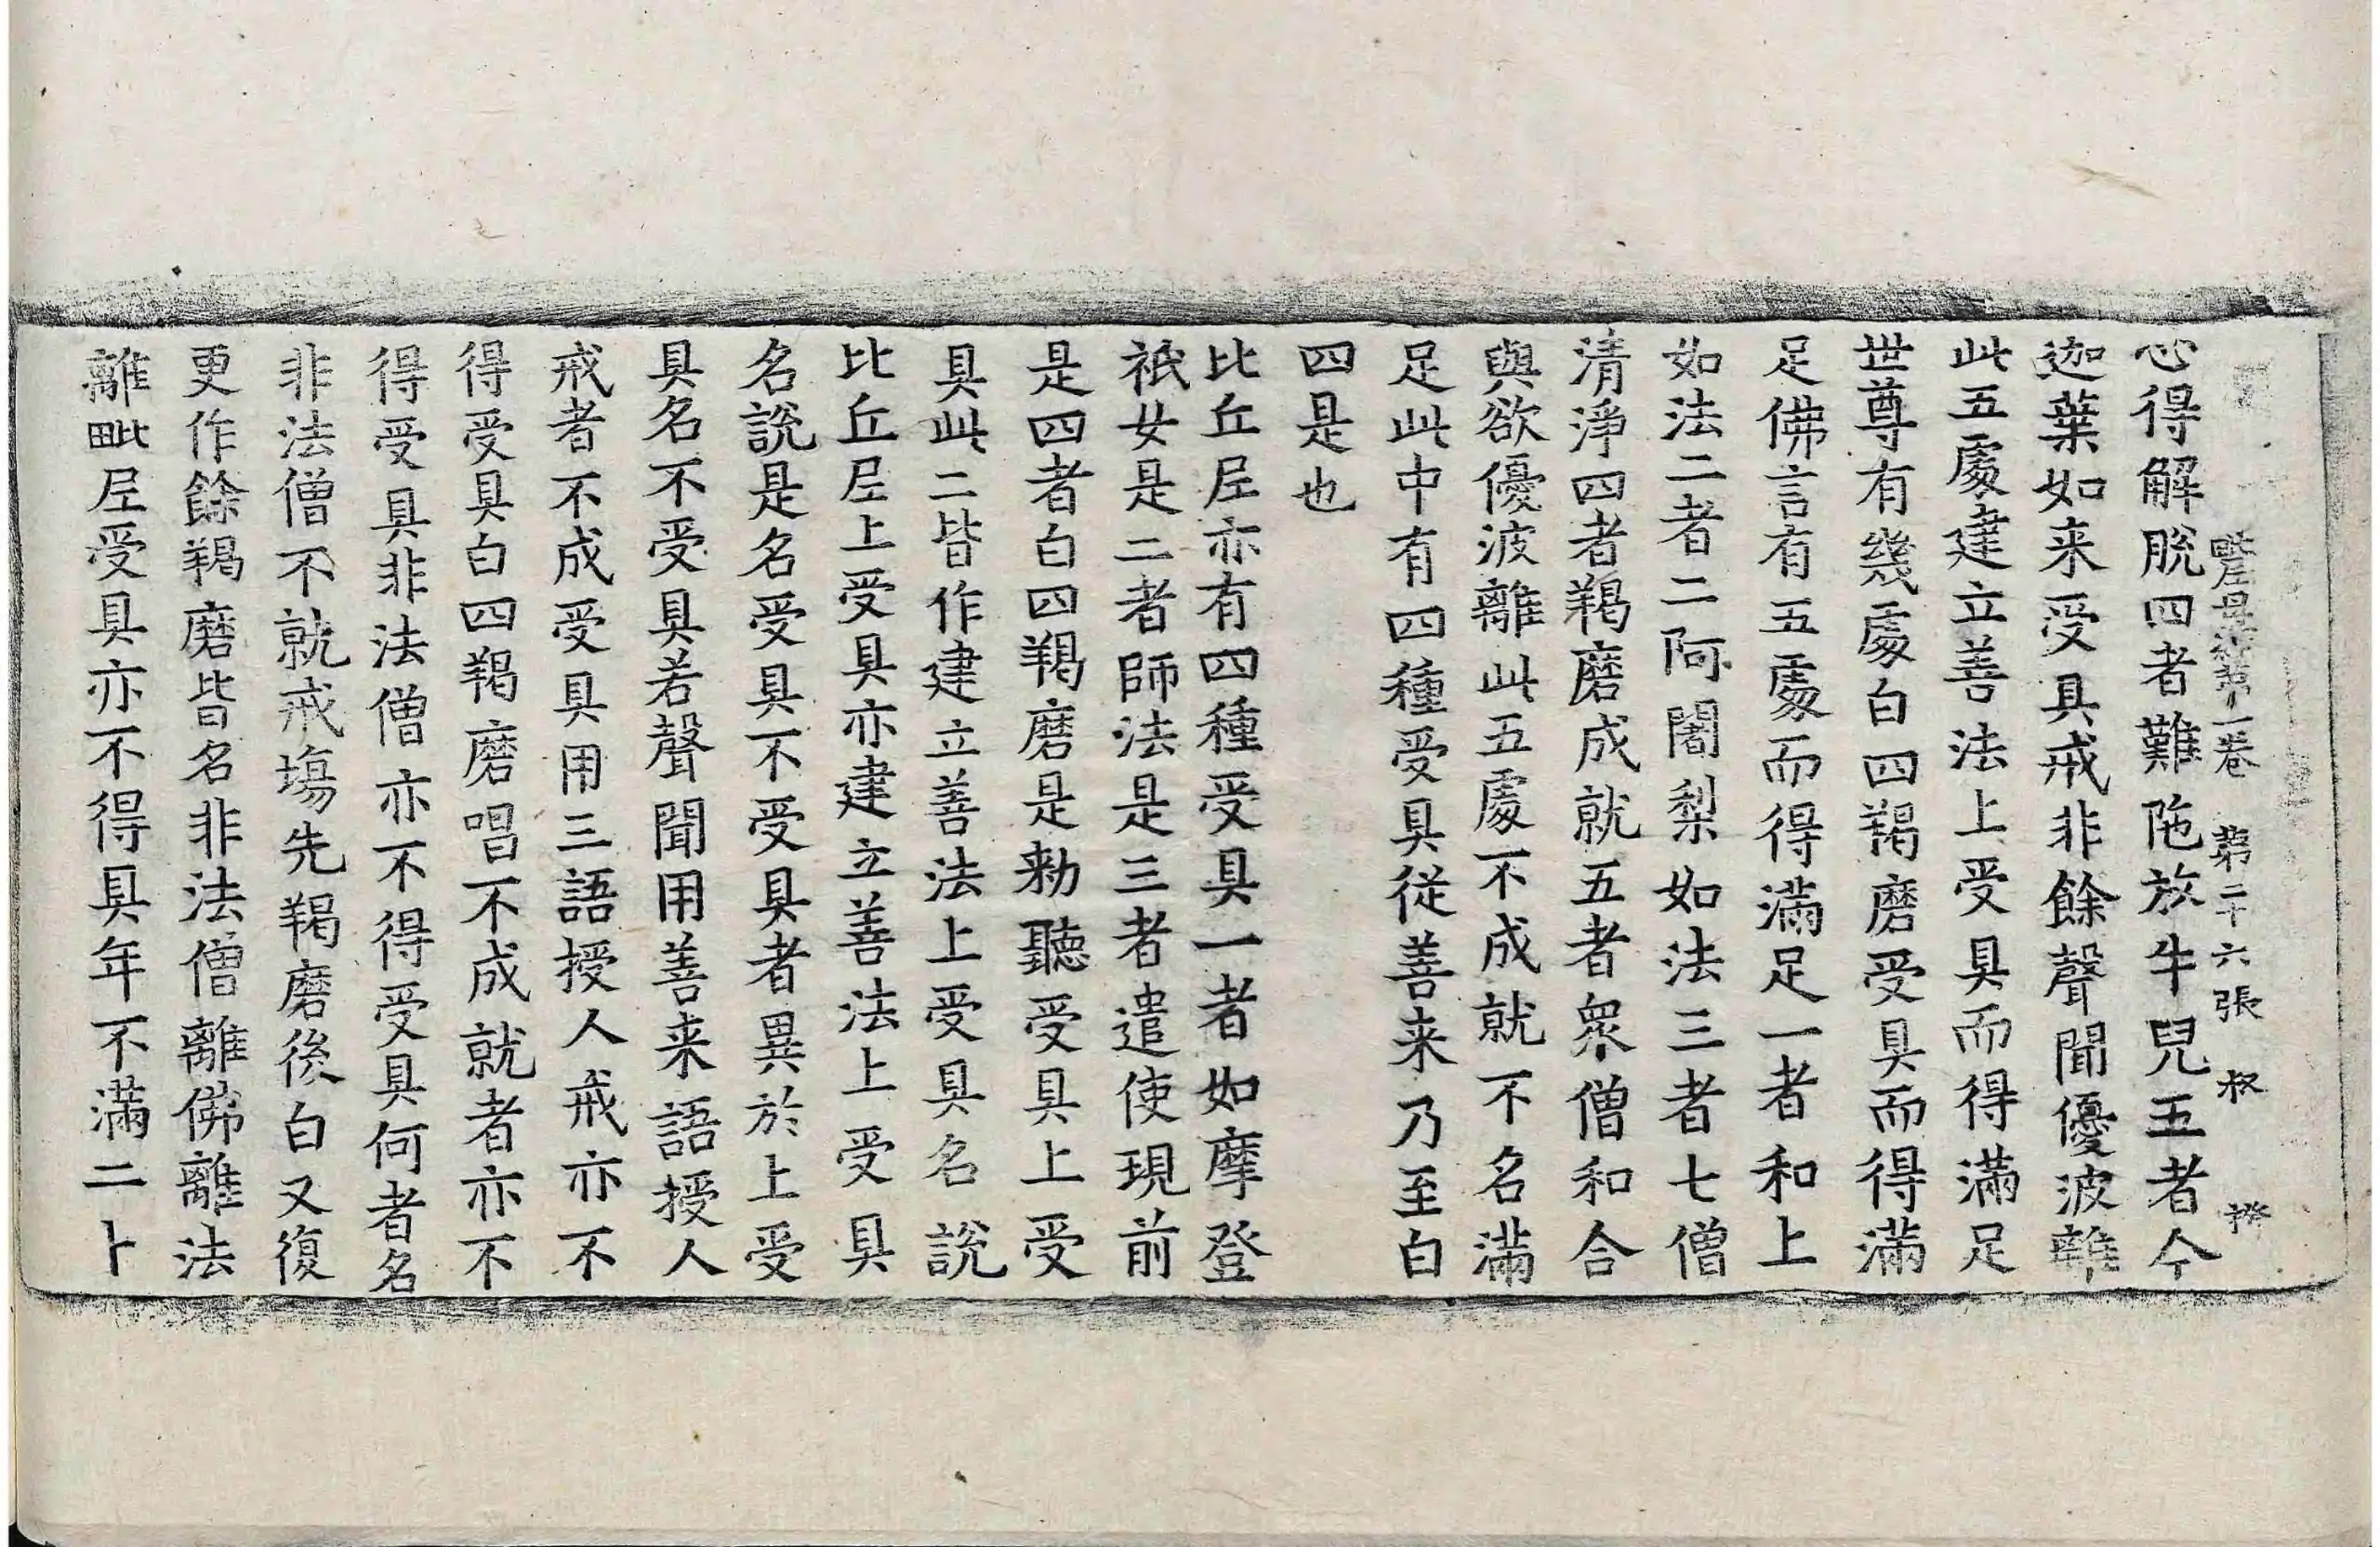 毗尼母經第一卷 第二十六張 叔
心得解脫四者難陁放牛兒五者今
迦葉如来受具戒非餘聲聞優波離
此五處建立善法上受具而得滿足
世尊有幾處白四羯磨受具而得滿
足佛言有五處而得滿足一者和上
如法二者二阿闍梨如法三者七僧
清淨四者羯磨成就五者衆僧和合
與欲優波離此五處不成就不名滿
足此中有四種受具從善来乃至白
四是也
比丘尼亦有四種受具一者如摩登
祇女是二者師法是三者遣使現前
是四者白四羯磨是勑聽受具上受
具此二皆作建立善法上受具名說
比丘尼上受具亦建立善法上受具
名說是名受具不受具者異於上受
具名不受具若聲聞用善来語授人
戒者不成受具用三語授人戒亦不
得受具白四羯磨唱不成就者亦不
得受具非法僧亦不得受具何者名
非法僧不就戒塲先羯磨後白又復
更作餘羯磨皆名非法僧離佛離法
離毗尼受具亦不得具年不滿二十